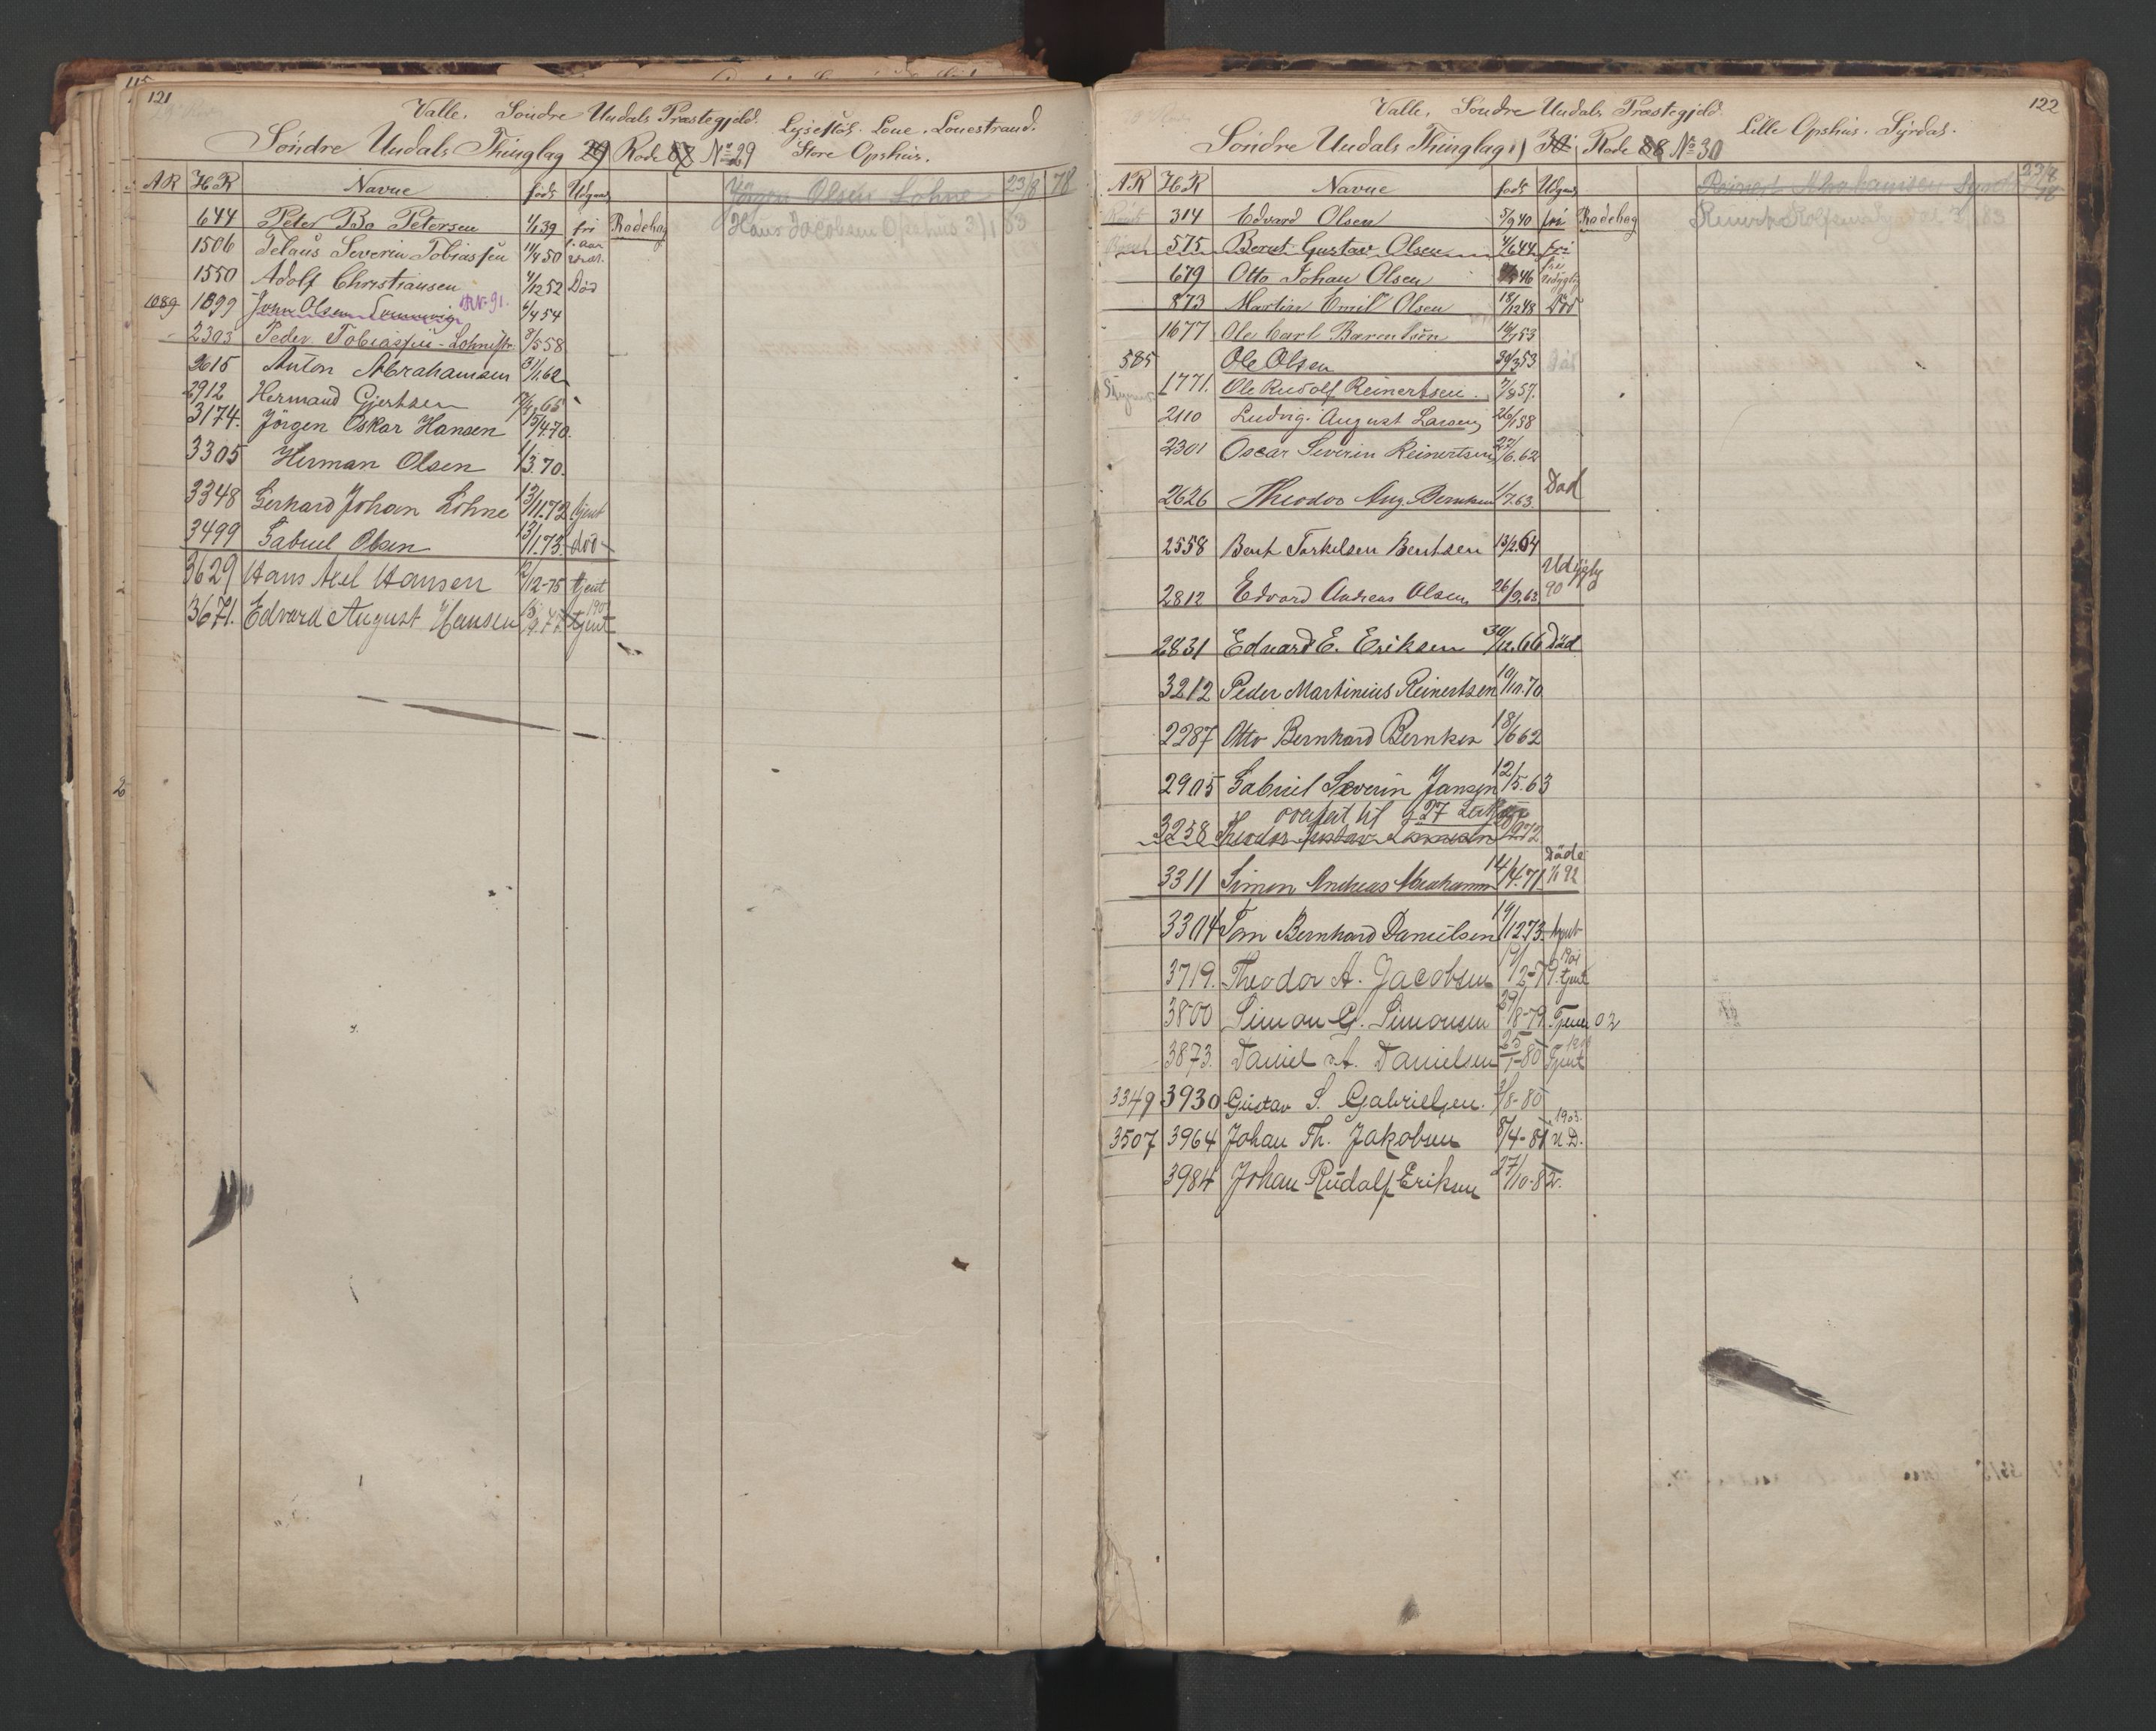 121
Valle. Søndre Undals Præstegjeld.
Lyseston. Lone. Lonestrand.
Søndre Undals Thinglag 29 Rode 87 No 29 Store Opshus.
AR HR Navne født Udgaar
Jørgen Olsen Lohne 23/8 78
644 Peter Bo Petersen 1/1 39 fri Rodebog
Hans Jacobsen Opshus 3/1 83
1506 Tobias Severin Tobiassen 11/4 50
1550 Adolf Christiansen 1/12 52 Död
1089 1899 John Olsen 4/4 54
2303 Peder Tobiassen Lohnestr. 8/5 58
2615 Anton Abrahamsen 31/1.62
2912 Hermand Gjertsen 65
3174. Jörgen Oskar Hansen 15/4.70.
3305 Herman Olsen 1/3.70.
3348 Gerhard Johan Lohne 13/11.72 tjent
3499 Gabriel Olsen 13/1.73. död
3629 Hans Axel Hansen 2/12-75 tjent
3671. Edvard August Hansen 77. tjent
122
Valle. Søndre Undals Præstegjeld.
Lille Opshus. Syrdal.
Søndre Undals Thinglag 30 Rode 88 No 30
AR HR Navne født Udgaar
Reinert Abrahamsen Syrdal 23/8 78
314 Edvard Olsen 5/9 40 fri Rodebog
575 Bernt Gustav Olsen 4/6 44 fri
679 Otto Johan Olsen 46
873 Martin Emil Olsen 18/12 48 Död
1677 Ole Carl Barentsen 53
585 Ole Olsen 20/3 53
1771. Ole Rudolf Reinertsen 7/8 57.
2110 Ludvig August Larsen 26/1 58
2301 Oscar Severin Reinertsen 27/6.62
2626 Theodor Aug. Berntsen 1/7.63. Död
2558 Bent Torkelsen Bentsen 13/2.64
2812 Edvard Andreas Olsen 26/9.63 Udygtig 90
2831 Edvard E. Eriksen 30/12.66 Död
3212 Peder Martinius Reinertsen 10/10.70
2287 Otto Bernhard Berntsen 18/6 62
2905 Gabriel Severin Jansen 12/5.63
overført til 27
3258 Theodor Gustav 9 72
3311 Simon Andreas Abrahamsen 14/4.71 Döde 92
3304 Tom Bernhard Danielsen 19/12 73. tjent
3719. Theodor A. Jacobsen 12-79. tjent
3800 Simon G. Simonsen 29/8-79 Tjener 02
3873. Daniel A. Danielsen 25/1-80 Tjent
3349 3930 Gustav S. Gabrielsen. 3/8-80
3507 3964 Johan Th. Jakobsen 8/4-81 1903. U.D.
3984 Johan Rudolf Eriksen 27/10-82.